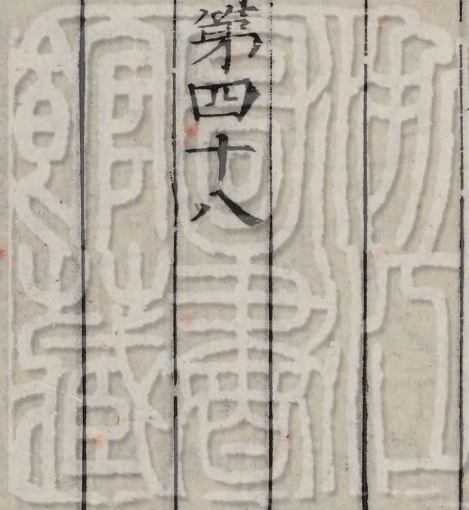 第四十八
浙江
圖書
館藏